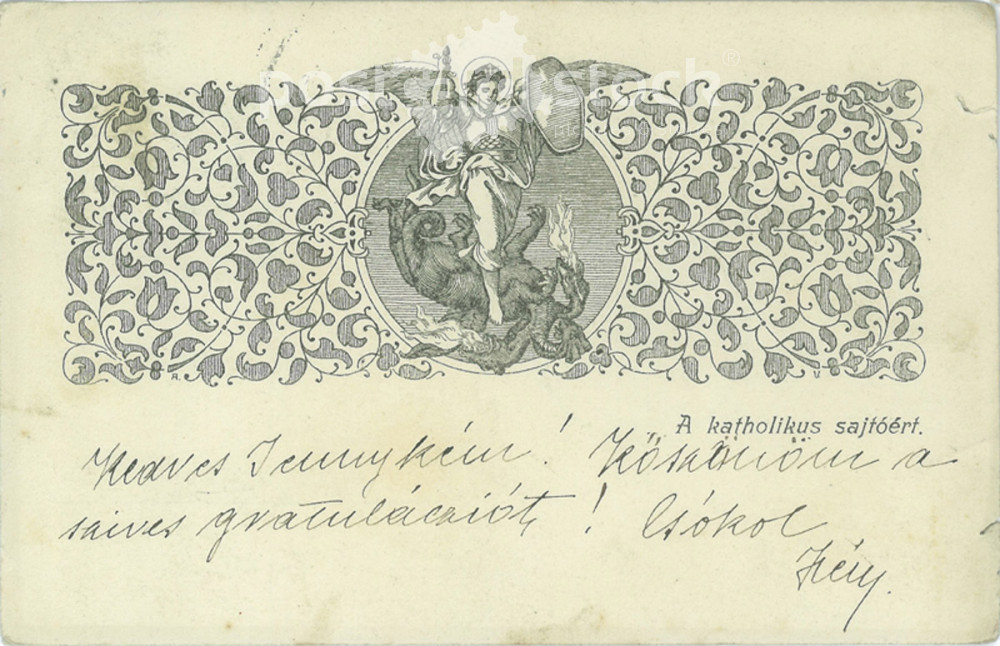 A katholikus sajtóért.
Kedves Jennykém! Köszönöm a
szives gratulácziót! Csókol